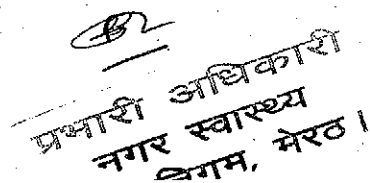 प्रभारी अधिकारी
नगर स्वास्थ्य
निगम, मेरठ।